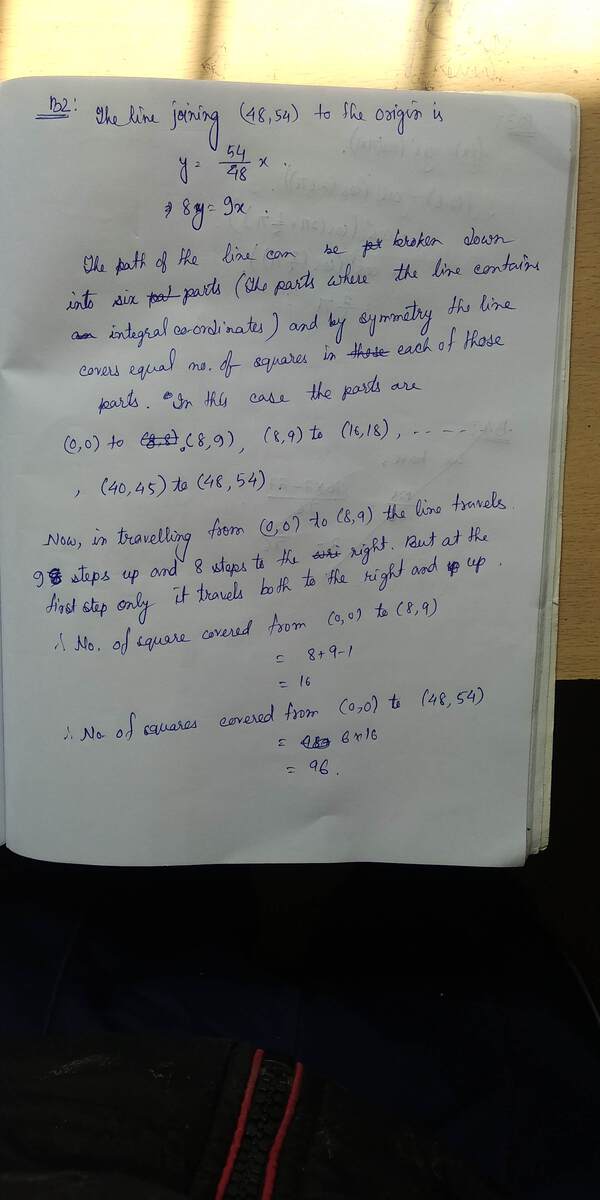 B2: The line joining (48,54) to the origin is
y = 54/48 x .
⇒ 8y = 9x .
The path of the line can be broken down
into six parts (the parts where the line contains
integral co-ordinates) and by symmetry the line
covers equal no. of squares in each of those
parts. In this case the parts are
(0,0) to (8,9), (8,9) to (16,18), -----
, (40,45) to (48,54).
Now, in travelling from (0,0) to (8,9) the line travels
9 steps up and 8 steps to the right. But at the
first step only it travels both to the right and up.
∴ No. of square covered from (0,0) to (8,9)
= 8+9-1
= 16
∴ No of squares covered from (0,0) to (48,54)
= 6×16
= 96.